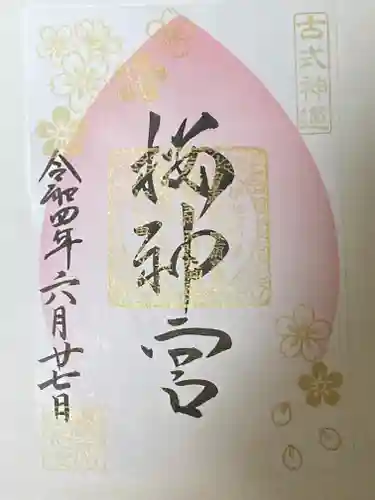 古式神宮
桜神宮
令和四年六月廿七日